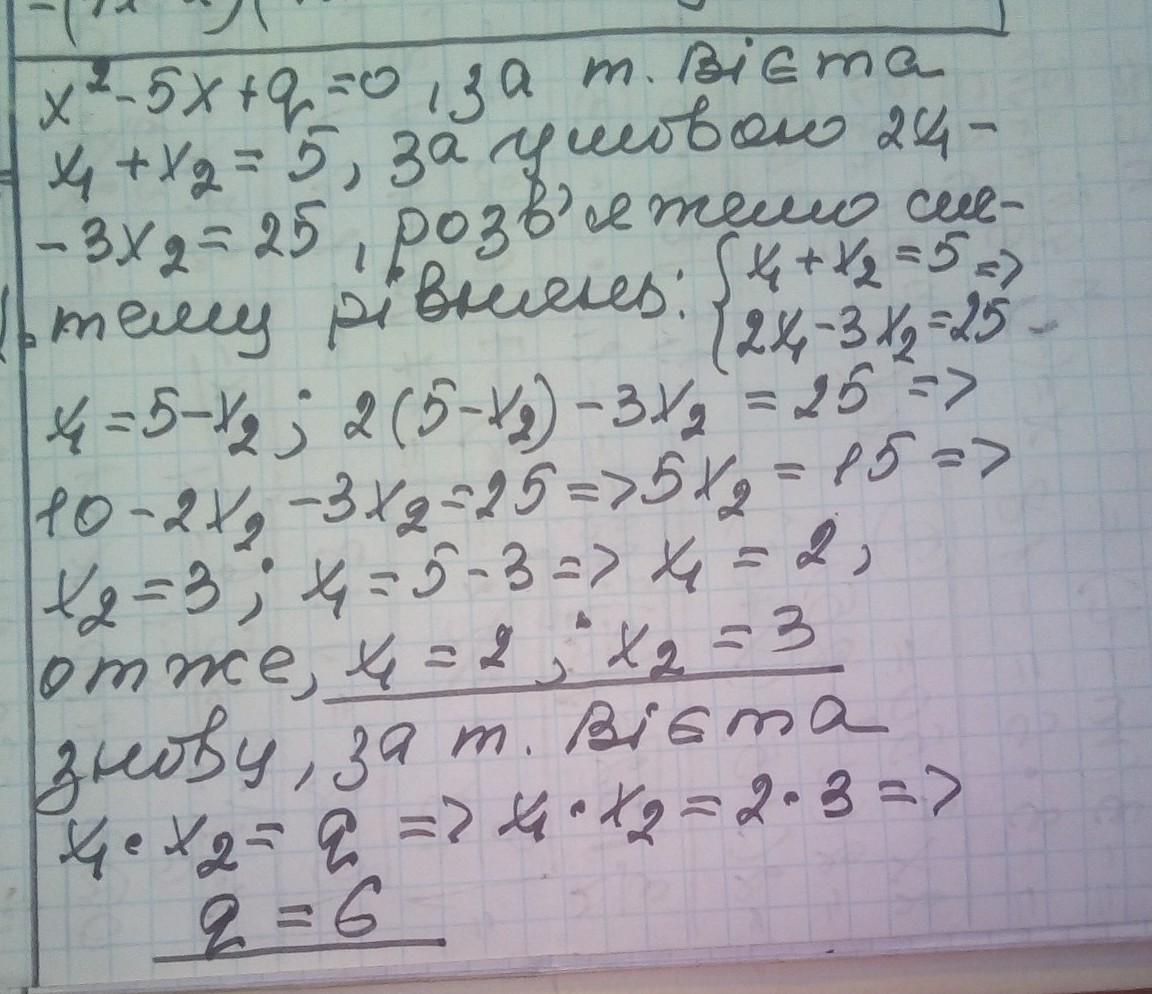 x² - 5x + q = 0, за т. Вієта
x₁ + x₂ = 5, за умовою 2x₁ -
- 3x₂ = 25, розв'яжемо сис-
тему рівнянь: { x₁ + x₂ = 5 =>
2x₁ - 3x₂ = 25
x₁ = 5 - x₂; 2(5 - x₂) - 3x₂ = 25 =>
10 - 2x₂ - 3x₂ = 25 => 5x₂ = 15 =>
x₂ = 3; x₁ = 5 - 3 => x₁ = 2,
отже, x₁ = 2; x₂ = 3
знову, за т. Вієта
x₁ · x₂ = q => x₁ · x₂ = 2 · 3 =>
q = 6